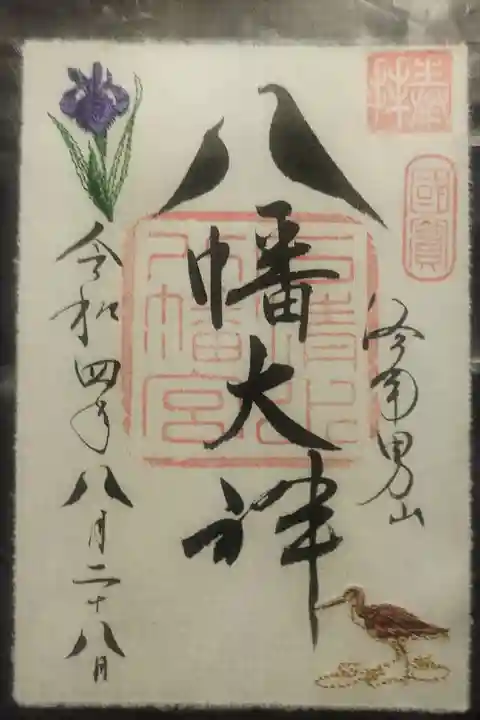 奉拝
國寶
洛南男山
八幡大神
石清水
八幡宮
令和四年八月二十八日